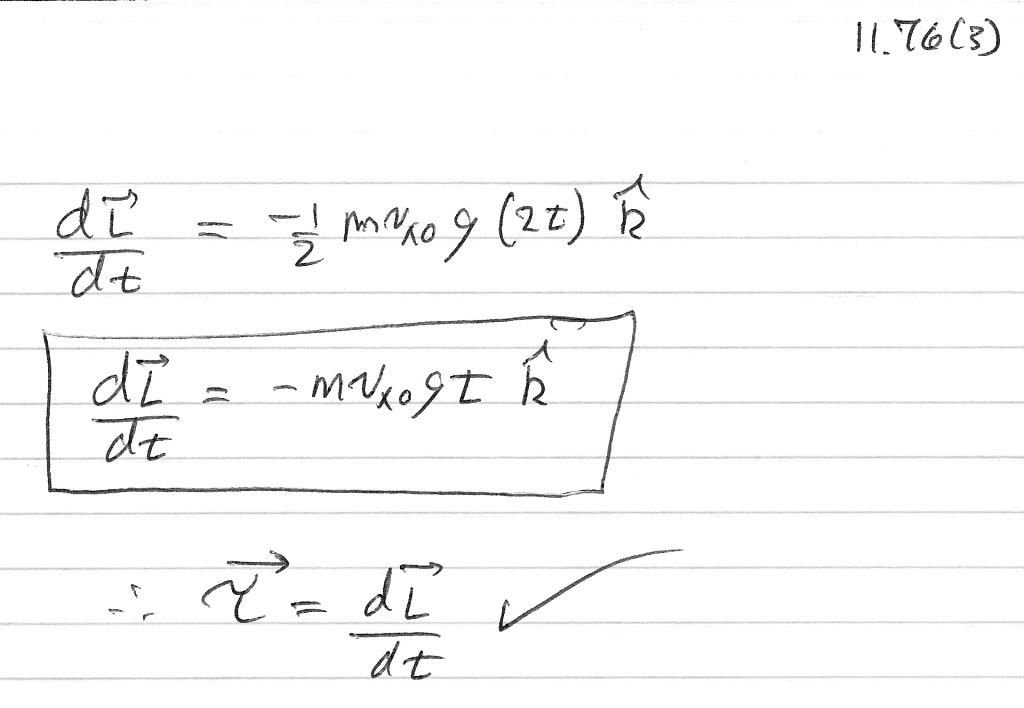 11.76(3)
dL⃗/dt = -1/2 m v_x0 g (2t) k̂
dL⃗/dt = -m v_x0 g t k̂
∴ τ⃗ = dL⃗/dt ✓